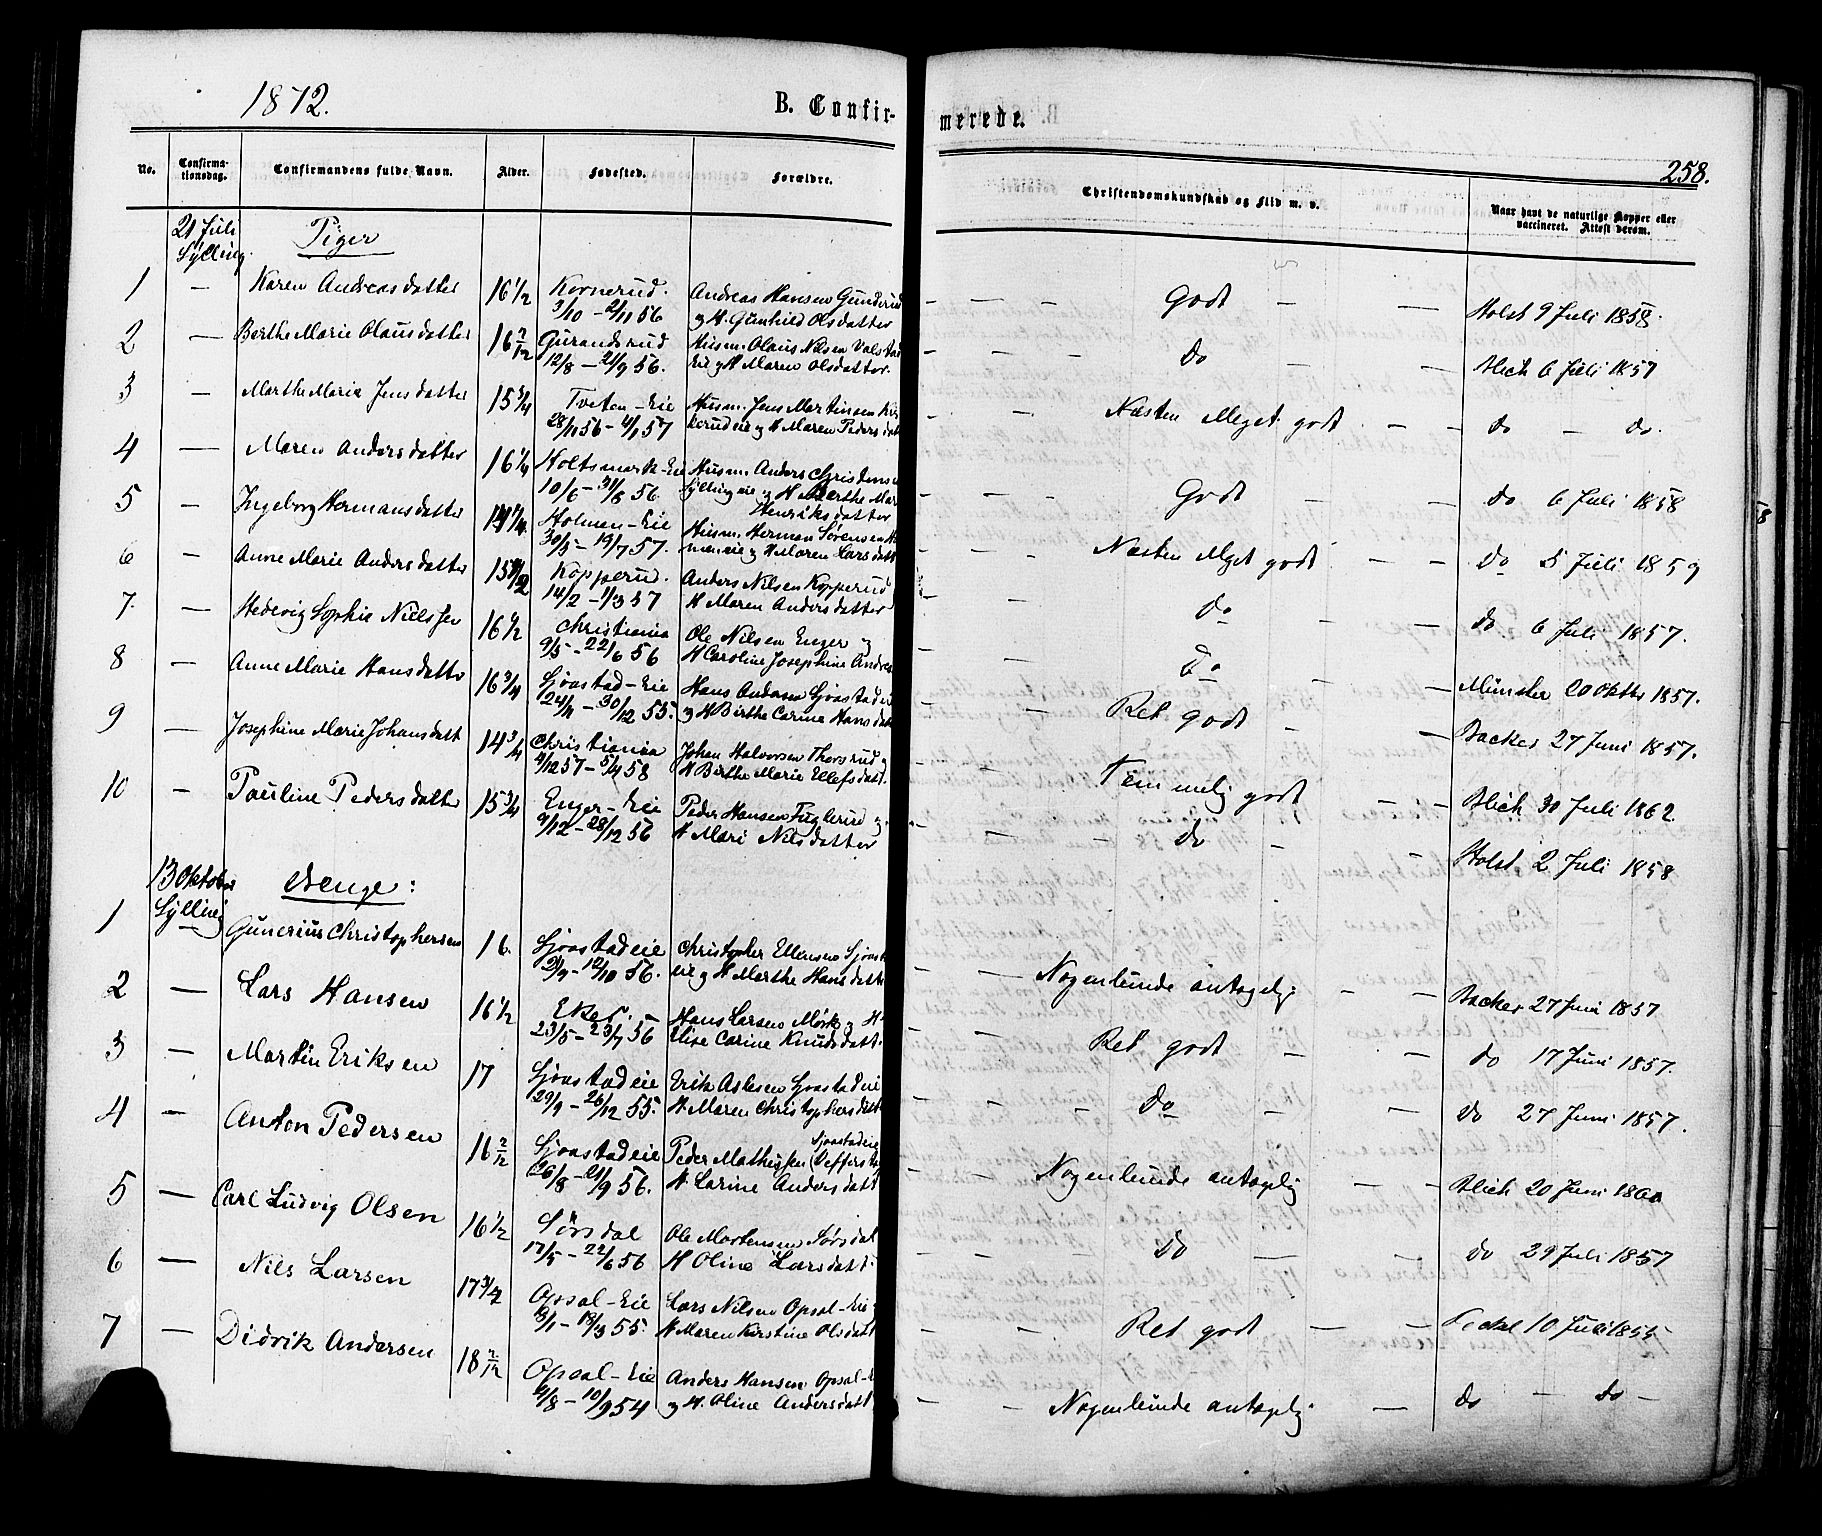 1872.
B. Confir-
merede.
258.
No.
Confirma-
tionsdag.
Confirmandens fulde Navn.
Alder.
Fødested.
Forældre.
Christendomskundskab og Flid m. v.
Naar havt de naturlige Kopper eller
vaccineret. Attest derom.
21 Juli
Sylling.
Piger
1 — Karen Andreasdatter 16 1/2 Kornerud. Andreas Hansen Gunderud — — — Godt — — Holst 9 Juli 1858.
3/10 – 2/11 56 og H. Gunhild Olsdatter
2 — Berthe Marie Olausdatter 16 2/12 Gurandsrud Husm. Olaus Nilsen Valstad — — — Do — — Blich 6 Juli 1857
12/8 – 21/9 56. Eie og H Maren Olsdatter.
3 Marthe Maria Jensdatter 15 3/4 Tveten–Eie Husm. Jens Martinsen — — Næsten Meget godt — — do — do.
28/11 56 – 4/1 57 og H Maren Pedersdatt
4 — Maren Andersdatter 16 1/4 Holtsmark–Eie Husm. Anders Christensen — — Godt — — do 6 Juli 1858
10/6 – 31/8 56. Syllingeie og H Berthe Mar
Henriksdatter
5 — Ingeborg Hermansdatter Holmen–Eie Husm. Herman Sørensen — — Næsten Meget godt — — Do 5 Juli 1859
30/5 – 19/7 57. eie og H Maren Larsdatt
6 — Anne Marie Andersdatter Kopperud. Anders Nilsen Kopperud — — do do 6 Juli 1857.
14/2 – 1/3 57 H Maren Andersdatter
7. — Hedevig Sophie Nielssen 16 1/2 Christiania Ole Nilsen Enger og — do — — Münster 20 Oktbr 1857.
9/5 – 22/6 56 H Caroline Josephine Andrea
8 — Anne Marie Hansdatter 16 3/4 Sjøastad–Eie Hans Andersen Sjøastadeie — — Ret godt — — Backer 27 Juni 1857.
24/11 – 30/12 55. og H Birthe Carine Hansdatt
9 — Josephine Marie Johansdatt 14 3/4 Christiania Johan Halvorsen Thorsrud og Temmelig godt — — Blich 30 Juli 1862.
4/12 57 – 5/4 58 H Birthe Marie Ellefsdatt.
10 — Pauline Pedersdatter 15 3/4 Enger–Eie Peder Hansen Fuglerud og — — do — — Holst 2 Juli 1858
9/12 – 28/12 56 H Mari Nilsdatter
13 Oktober
Sylling
Drenge:
1 — Gunerius Christophersen 16. Sjøastadeie Christopher Ellensen Sjøast — — Nogenlunde antagelig — — Backer 27 Juni 1857
21/9 – 12/10 56. eie og H Marthe Hansdatter
2 — Lars Hansen 16 1/2 Eker. Hans Larsen Mørk og H — — Ret godt — — do 17 Juni 1857.
23/5 – 23/7 56 Elise Carine Knudsdatt.
3 — Martin Eriksen 17 Sjøastadeie Erik Aslesen Sjøastadeie — — Do — — do 27 Juni 1857.
29/9 – 26/12 55. H. Maren Christophersdatt
4 — Anton Pedersen 16 2/12 Sjøastadeie Peder Mathissen (Sjøastadeie — — Nogenlunde antagelig — — Blich 20 Juni 1860
26/8 – 21/9 56. H. Larine Andersdatt
5 — Carl Ludvig Olsen 16 1/2 Sørsdal Ole Mortensen Sørsdal — — Do — — do 29 Juli 1857
17/5 – 22/6 56 H Oline Larsdatt.
6 — Nils Larsen 17 3/4 Opsal–Eie Lars Nilsen Opsal–Eie — — Ret godt — — 10 Juli 1855
13/1 – 18/3 55. H Maren Kirstine Olsdatt
7 — Didrik Andersen 18 2/12 Opsal–Eie Anders Hansen Opsal– — — Nogenlunde antagelig — do — do —
9/8 – 10/9 54 og H. Oline Andersdatt